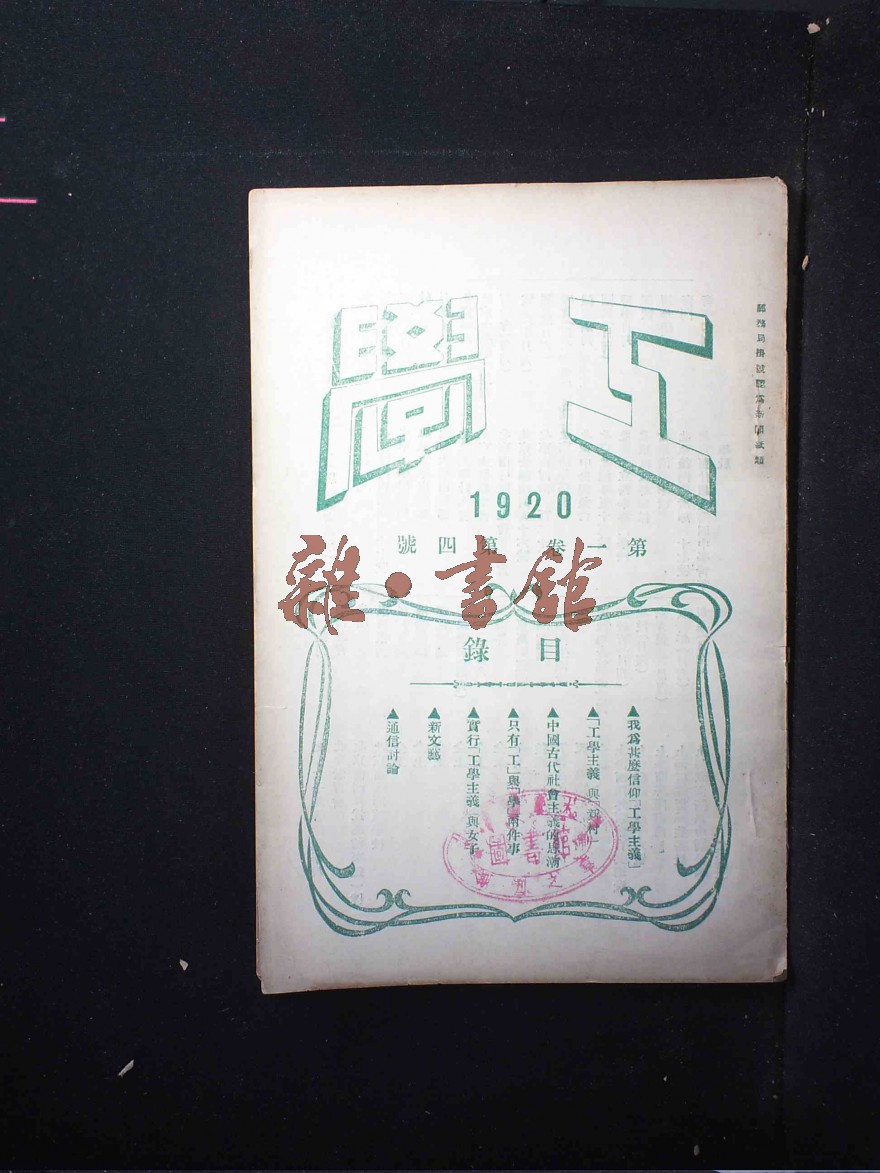 郵務局掛號認爲新聞紙類
工學
1920
第一卷 第四號
雜·書館
目錄
▲我爲甚麽信仰「工學主義」
▲「工學主義」與「新村」
▲中國古代社會主義的思潮
▲只有「工」與「學」兩件事
▲實行「工學主義」與女子
▲新文藝
▲通信討論
圖書館